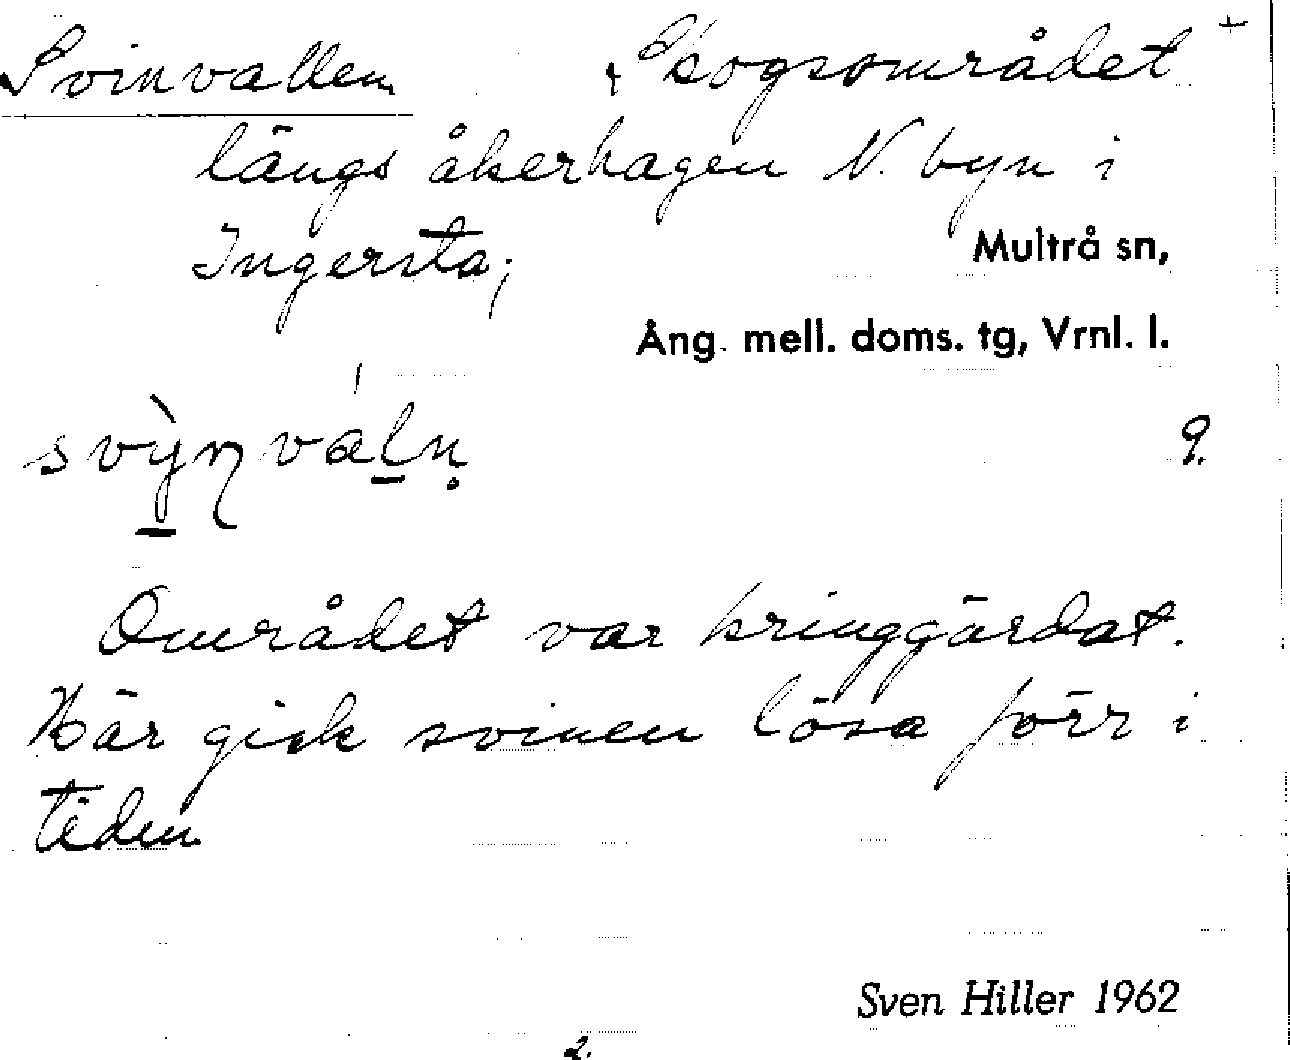 Svinvallen, Skogsområdet +
längs åkerhagen N. byn i
Ingersta; Multrå sn,
Ång. mell. doms. tg, Vrnl. l.
svỳn váln̥ 9.
Området var kringgärdat.
Här gick svinen lösa förr i
tiden
Sven Hiller 1962
2.